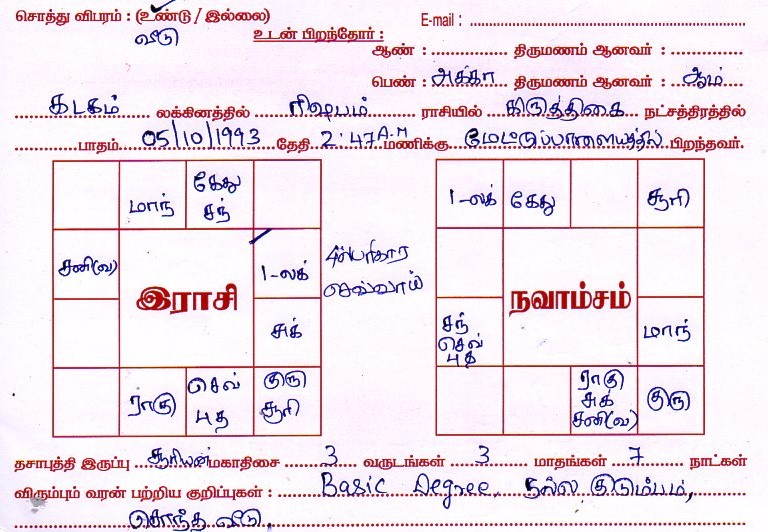 சொத்து விபரம் : (உண்டு / இல்லை) E-mail :
வீடு
உடன் பிறந்தோர் :
ஆண் : திருமணம் ஆனவர் :
பெண் : அக்கா திருமணம் ஆனவர் : ஆம்
கடகம் லக்கினத்தில் ரிஷபம் ராசியில் கிருத்திகை நட்சத்திரத்தில்
பாதம் 05/10/1993 தேதி 2:47 A.M மணிக்கு மேட்டுப்பாளையத்தில் பிறந்தவர்.
மாந் கேது சந்
சனி(வ) 1-லக்
இராசி
சுக்
ராகு செவ் புத குரு சூரி
4ல் பரிகார செவ்வாய்
1-லக் கேது சூரி
நவாம்சம்
சந் செவ் புத மாந்
ராகு சுக் சனி(வ) குரு
தசாபுத்தி இருப்பு சூரியன் மகாதிசை 3 வருடங்கள் 3 மாதங்கள் 7 நாட்கள்
விரும்பும் வரன் பற்றிய குறிப்புகள் : Basic Degree. நல்ல குடும்பம்,
சொந்த வீடு.